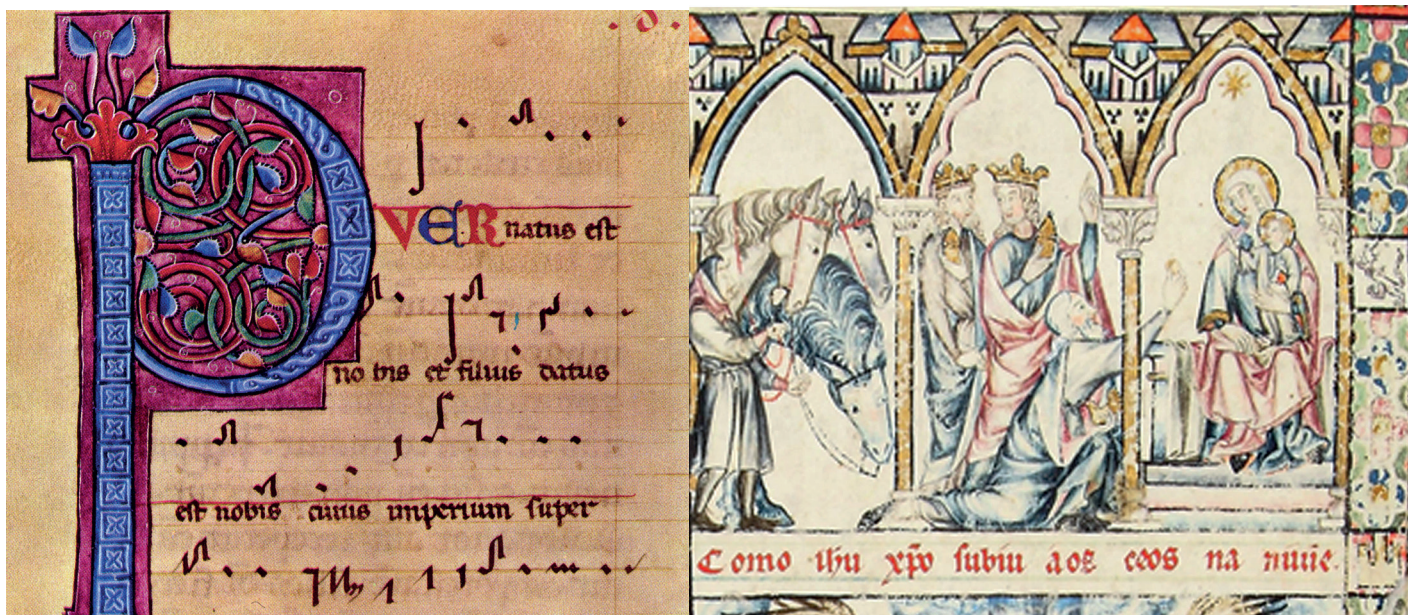 PVER natus est
no bis et filius datus
est nobis cuius imperium super
Como ihu xpo subiu aos ceos na nuue.